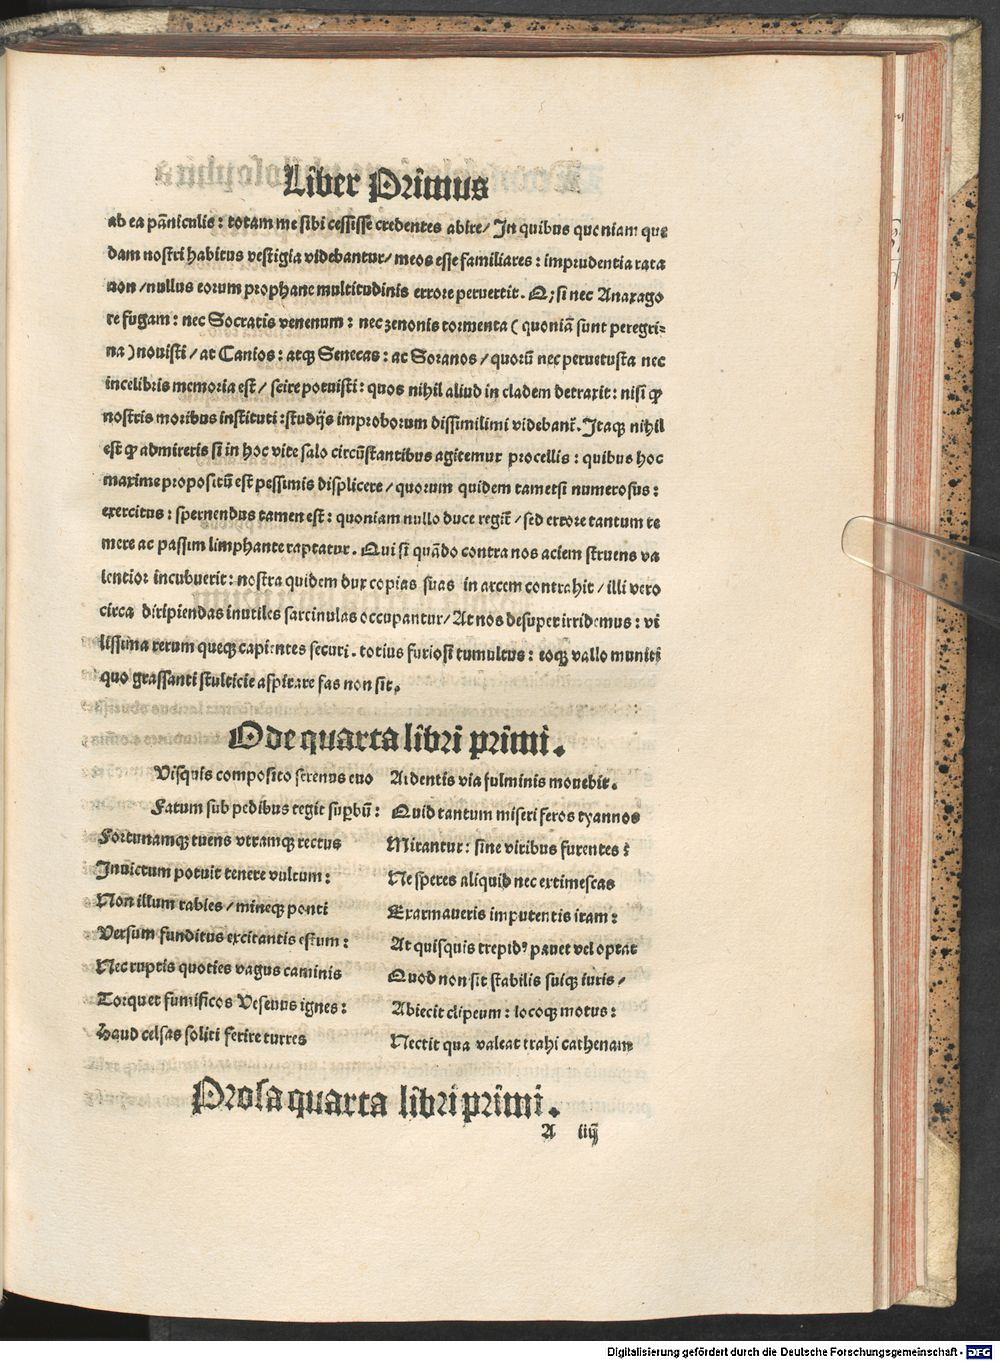 Liber Primus
ab ea pāniculis: totam me sibi cessisse credentes abire/ In quibus quoniam que
dam nostri habitus vestigia videbantur/ meos esse familiares: imprudentia rata
non/nullus eorum prophane multitudinis errore peruertit. Q; si nec Anaxago
re fugam: nec Socratis venenum: nec zenonis tormenta (quoniā sunt peregri-
na) novisti/ at Canios: atqꝫ Senecas: at Soranos/ quorū nec peruetusta nec
incelibris memoria est/ scire potuisti: quos nihil aliud in cladem detraxit: nisi ꝙ
nostris moribus instituti: studijs improborum dissimilimi videbant᷑. Itaqꝫ nihil
est ꝙ admireris si in hoc vite salo circūstantibus agitemur procellis: quibus hoc
maxime propositū est pessimis displicere/ quorum quidem tametsi numerosus:
exercitus: spernendus tamen est: quoniam nullo duce regit᷑/ sed errore tantum te
mere ac passim limphante raptatur. Qui si quādo contra nos aciem struens va
lentior incubuerit: nostra quidem dux copias suas in arcem contrahit/ illi vero
circa diripiendas inutiles sarcinulas occupantur/ At nos desuper irridemus: vi
lissima rerum queqꝫ capientes securi. totius furiosi tumultus: eoqꝫ vallo muniti
quo grassanti stulticie aspirare fas non sit.
Ode quarta libri primi.
Visquis composito serenus euo
Fatum sub pedibus regit suꝑbū:
Fortunamqꝫ tuens vtramqꝫ rectus
Inuictum potuit tenere vultum:
Non illum rabies/ mineqꝫ ponti
Versum funditus excitantis estum:
Nec ruptis quoties vagus caminis
Torquet fumificos Vesenus ignes:
Haud celsas soliti ferire turres
Ardentis via fulminis mouebit.
Quid tantum miseri feros tyannos
Mirantur: sine viribus furentes:
Ne speres aliquid nec extimescas
Exarmaueris imputentis iram:
At quisquis trepidꝰ pauet vel optat
Quod non sit stabilis suiqꝫ iuris/
Abiecit clipeum: locoqꝫ motus:
Nectit qua valeat trahi cathenam
Prosa quarta libri primi.
A iiij
Digitalisierung gefördert durch die Deutsche Forschungsgemeinschaft - DFG